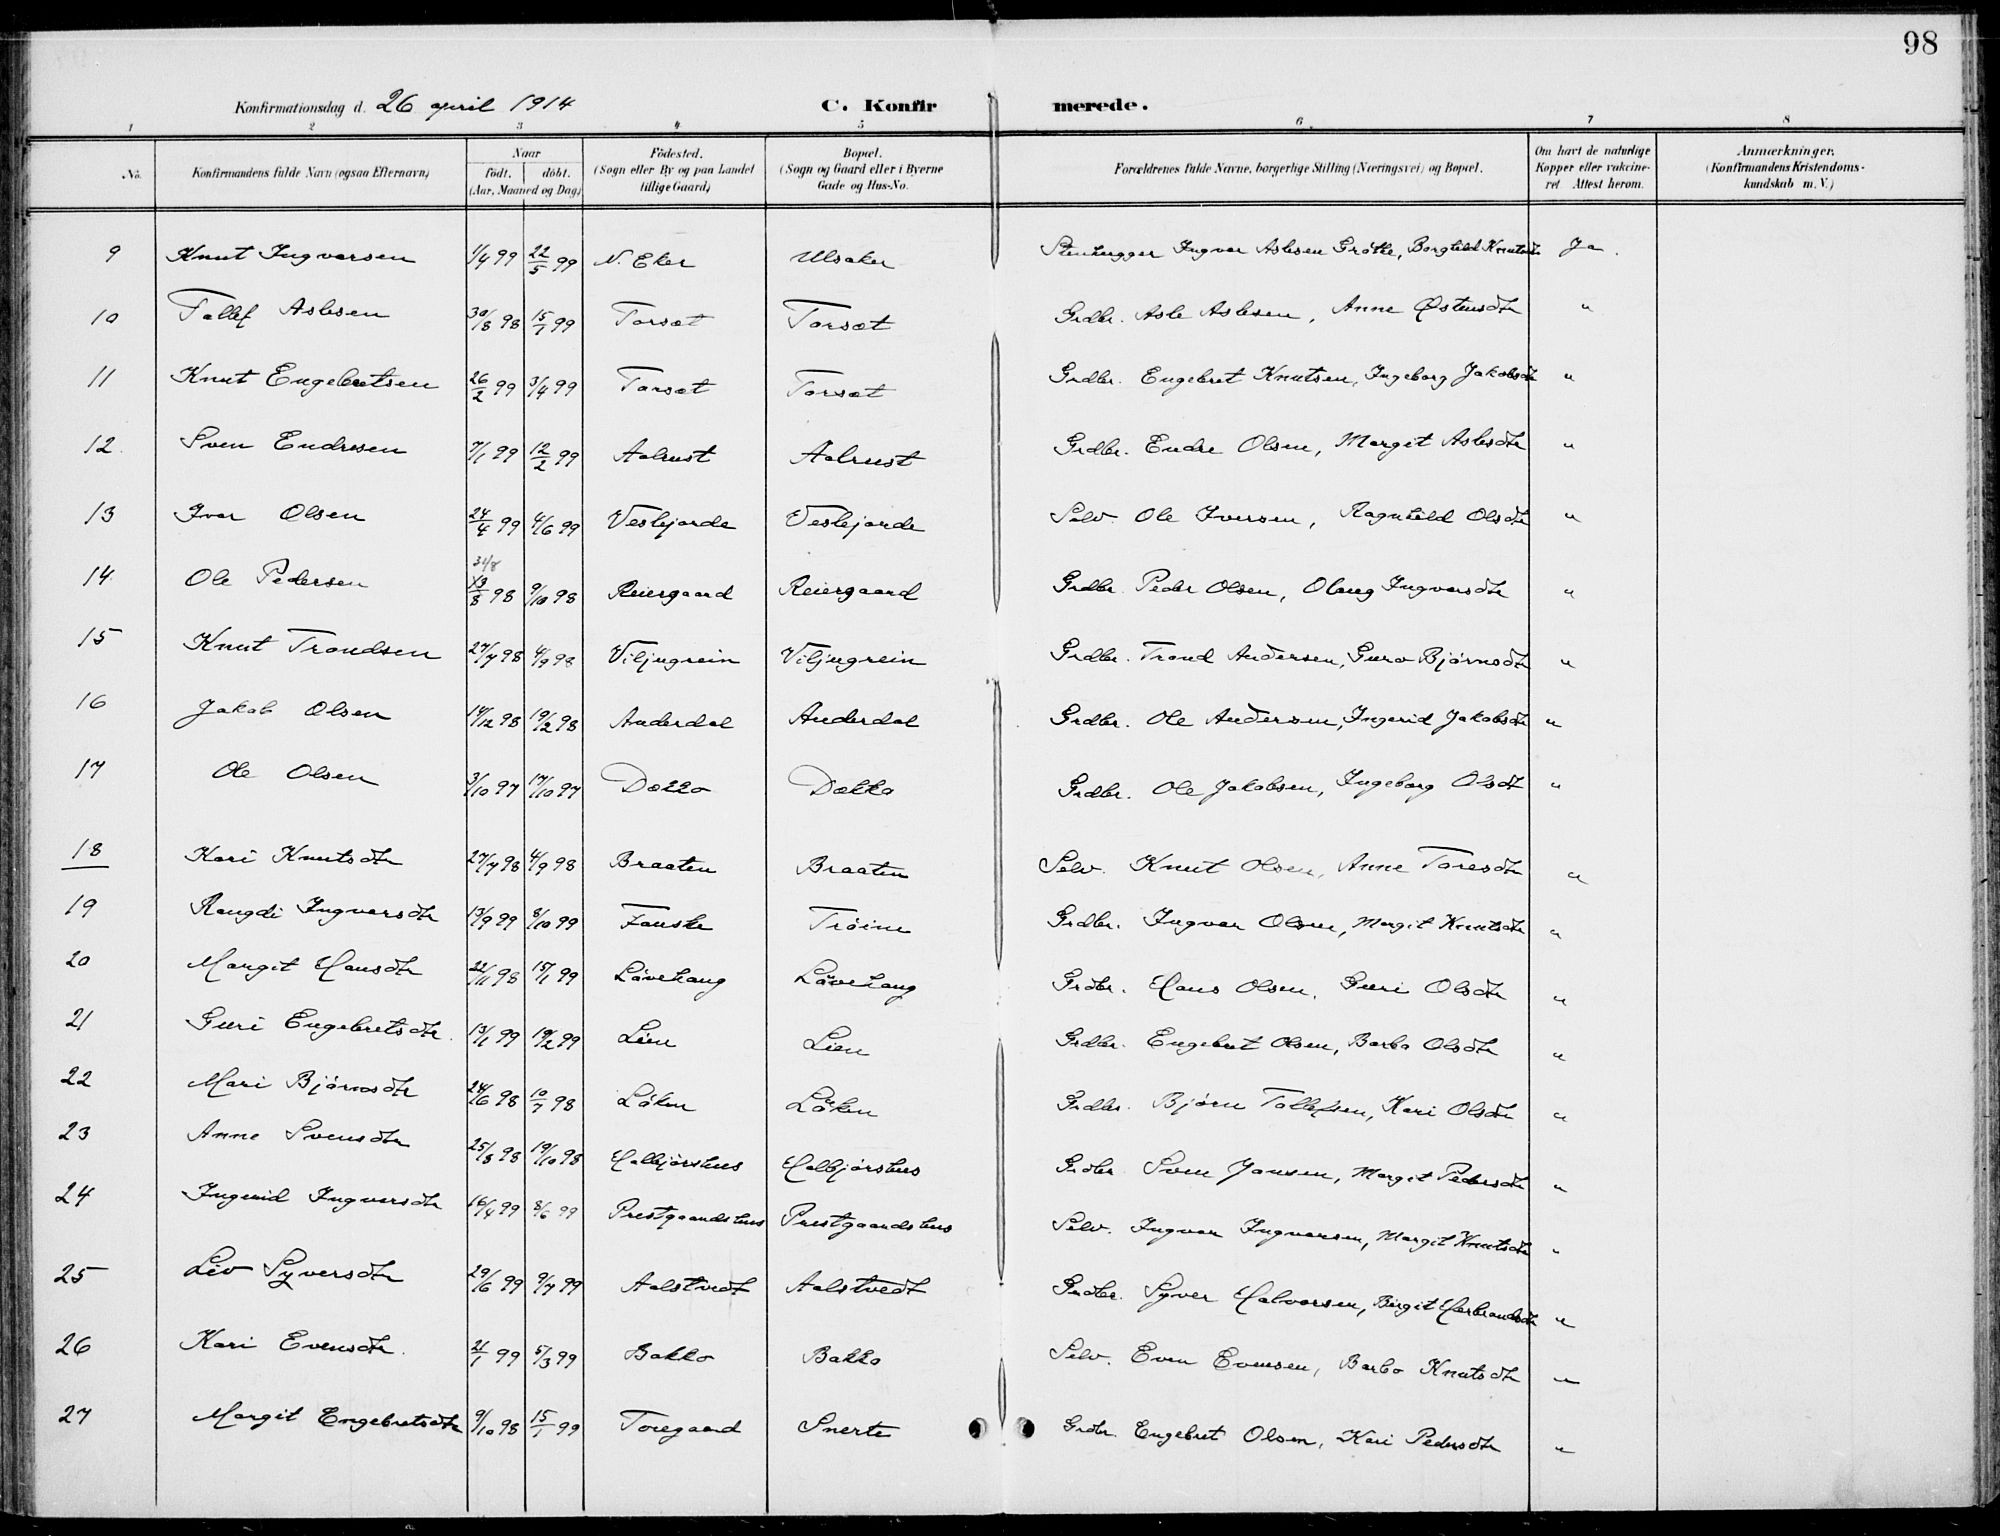 98
Konfirmationsdag d. 26 april 1914 C. Konfirmerede.
1 2 3 4 5 6 7 8
No. Konfirmandens fulde Navn (ogsaa Efternavn) Naar födt. döbt. (Aar, Maaned og Dag) Födested. (Sogn eller By og paa Landet tillige Gaard) Bopæl. (Sogn og Gaard eller i Byerne Gade og Hus-No. Forældrenes fulde Navne, borgerlige Stilling (Næringsvei) og Bopæl. Om havt de naturlige Kopper eller vakcineret. Attest herom. Anmærkninger. (Konfirmandens Kristendomskundskab m. V.)
9 Knut Ingvarsen 1/4 99 22/5 99 N. Eker Ulsaker Stenhugger Ingvar Aslesen Gröthe, Borghild Knutsdtr Ja.
10 Tollef Aslesen 30/8 98 15/1 99 Torsæt Torsæt Grdbr. Asle Aslesen, Anne Østensdtr "
11 Knut Engebretsen 26/2 99 3/4 99 Torsæt Torsæt Grdbr. Engebret Knutsen, Ingeborg Jakobsdtr "
12. Sven Endresen 7/1 99 12/2 99 Aalrust Aalrust Grdbr. Endre Olsen, Margit Aslesdtr "
13 Ivar Olsen 24/4 99 4/6 99 Veslejorde Veslejorde Selv. Ole Iversen, Ragnhild Olsdtr "
14. Ole Pedersen 31/8 13/8 98 9/10 98 Reiergaard Reiergaard Grdbr. Peder Olsen, Olaug Ingvarsdtr "
15 Knut Trondsen 27/7 98 4/9 98 Viljugrein Viljugrein Grdbr. Trond Andersen, Guro Bjørnsdtr "
16 Jakob Olsen 14/12 98 19/2 98 Anderdal Anderdal Grdbr. Ole Andersen, Ingerid Jakobsdtr "
17 Ole Olsen 3/10 97 17/10 97 Dokko Dokko Grdbr. Ole Jakobsen, Ingeborg Olsdt "
18 Kari Knutsdtr 27/7 98 4/9 98 Braaten Braaten Selv. Knut Olsen, Anne Toresdtr "
19 Rangdi Ingvarsdtr 13/9 99 8/10 99 Fauske Tröim Grdbr. Ingvar Olsen, Margit Knutsdtr "
20 Margit Hansdtr 22/11 98 15/1 99 Lövehaug Lövehaug Grdbr. Hans Olsen, Guri Olsdtr "
21 Guri Engebretsdtr. 13/1 99 19/2 99 Lien Lien Grdbr. Engebret Olsen, Barbo Olsdtr "
22 Mari Bjørnsdtr 24/6 98 10/7 98 Löken Löken Grdbr. Bjørn Tollefsen, Kari Olsdtr "
23 Anne Svensdtr 25/8 98 19/10 98 Halbjörshus Halbjörshus Grdbr. Sven Jansen, Margit Pedersdtr "
24 Ingerid Ingvarsdtr 16/4 99 8/6 99 Prestgaardshus Prestgaardshus Selv. Ingvar Ingvarsen, Margit Knutsdtr "
25 Liv Syversdtr 29/6 99 9/7 99 Aalstvedt Aalstvedt Grdbr. Syver Halvorsen, Birgit Herbrandsdtr "
26 Kari Evensdtr. 21/1 99 5/3 99 Bakko Bakko Selv. Even Evensen, Barbo Knutsdtr "
27 Margit Engebretsdtr 9/10 98 15/1 99 Toregaard Snerte Grdbr. Engebret Olsen, Kari Pedersdtr "